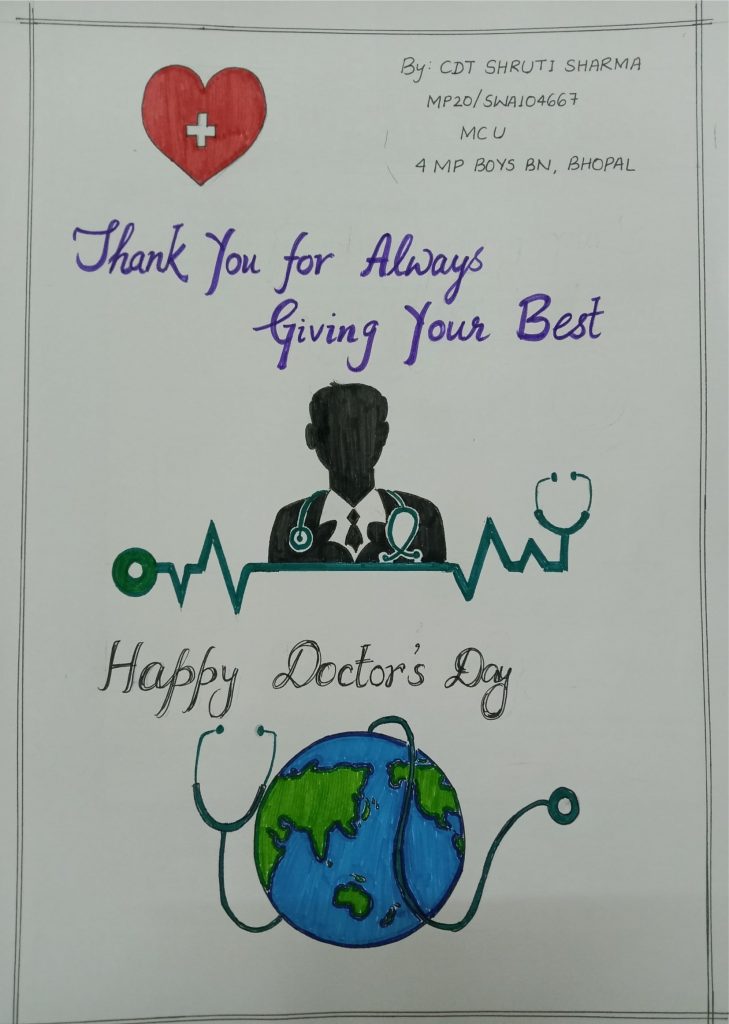 By: CDT SHRUTI SHARMA
MP20/SWA104667
MCU
4 MP BOYS BN, BHOPAL
Thank You for Always
Giving Your Best
Happy Doctor's Day